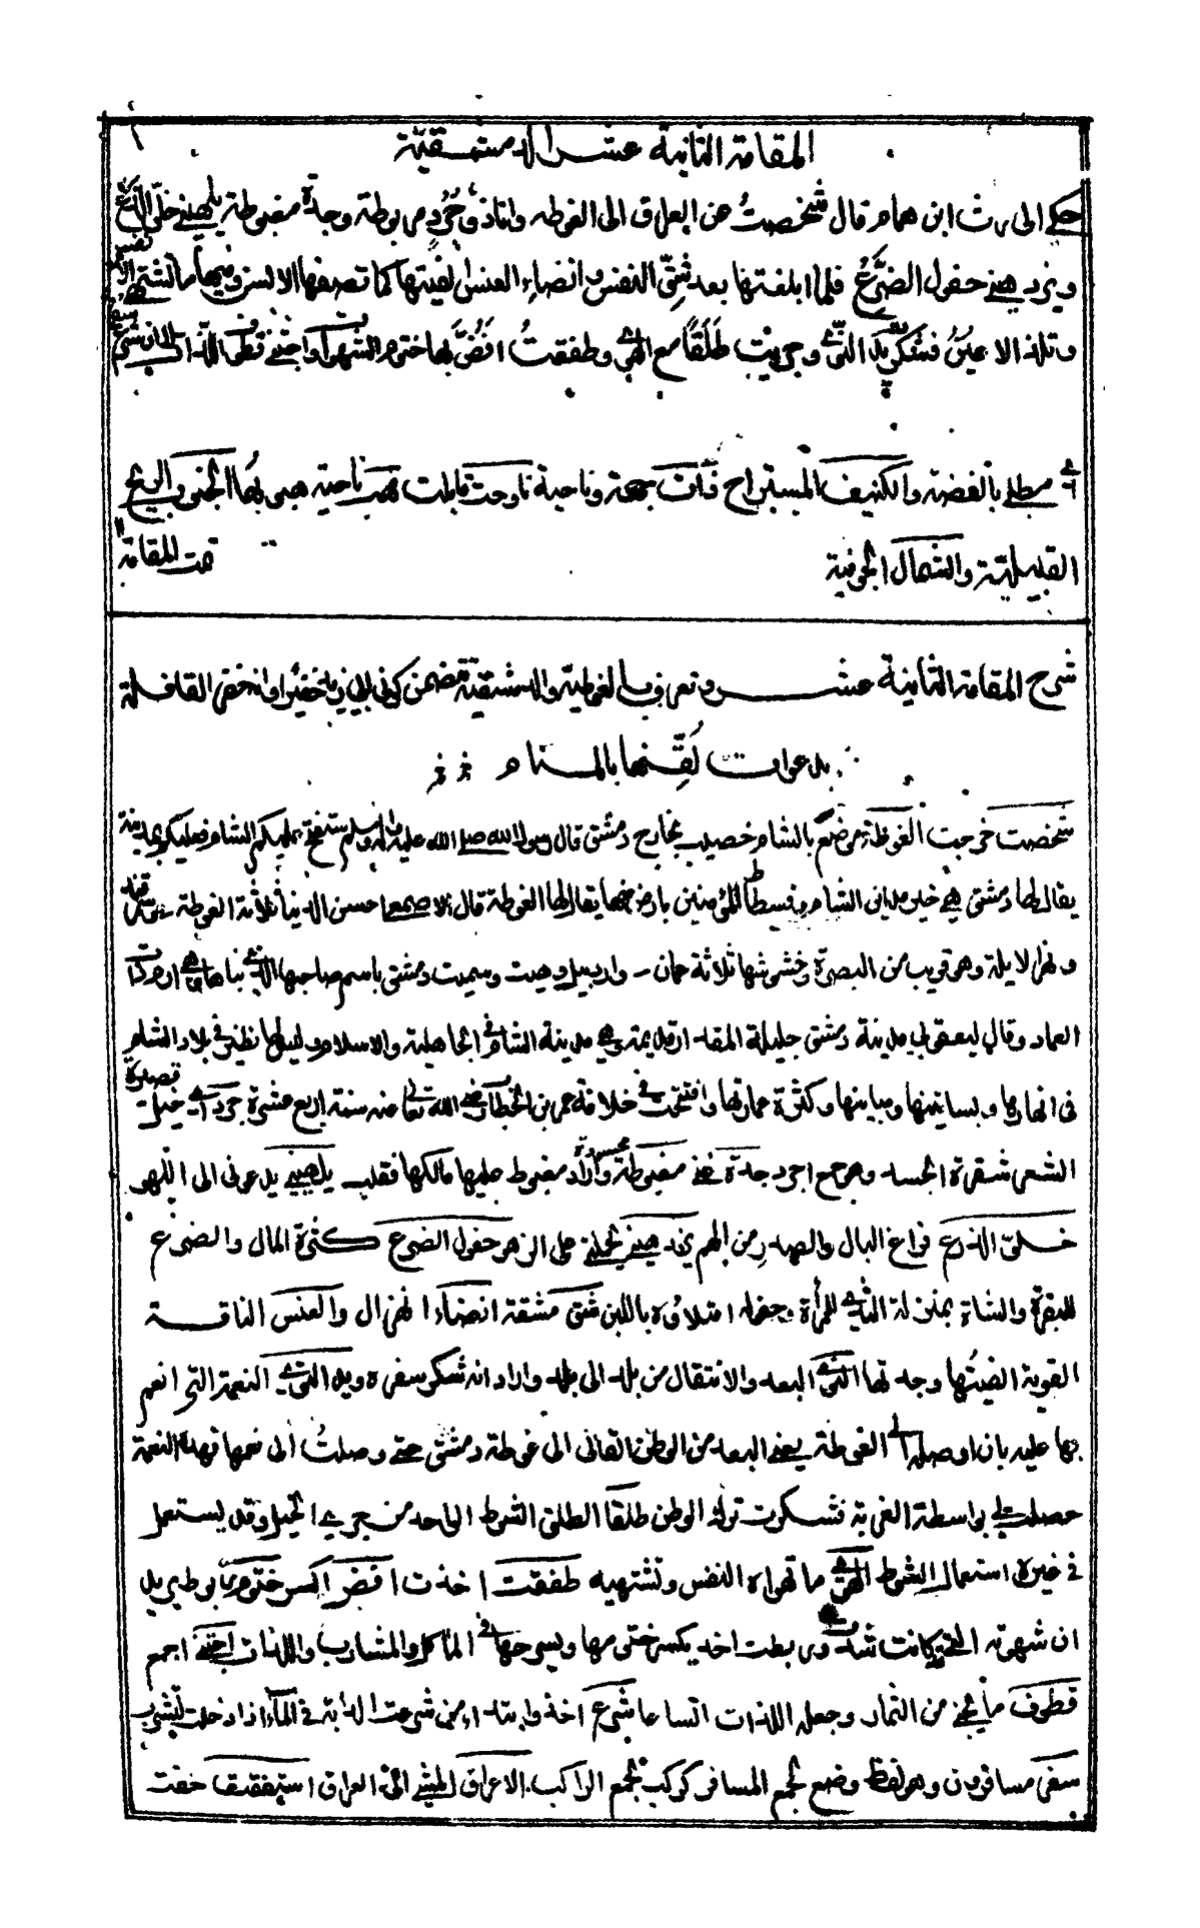 المقامة الثانية عشر الدمشقية
حكى الحارث ابن همام قال شخصتُ من العراق الى الغوطه وانا ذو جُرْدٍ مربوطة وجدة مغبوطة يلهيني خلوّ الذَّرْع
ويزدهيني حفول الضَّرْعُ فلما بلغتها بعد شِقّ النفس وانضاء العنس لفيتها كما تصفها الالسن وفيها ما تشتهى الانفس
وتلذ الاعين فشكرت يد النَّوى وجريت طَلَقًا مع الهوى وطفقتُ افُضُّ بها ختوم الشهوات واجتنى قطوف اللذات الى ان شرع
مطلى بالفضة والكنيف المستراح وناحية ناوحت قابلت مهب ناحية هبوبها الجنوب الريح
القبيلية والشمال الجوفية تمت المقامة
شرح المقامة الثانية عشر وتعرف بالغوطية والدمشقية تتضمن كون ابى زيد خفيرا وانه خفر القافلة
بدعوات لُقِّنها بالمنام
شخصت خرجت الغوطة موضع بالشام خصيب بخارج دمشق قال رسول الله صلى الله عليه وسلم ستفتح عليكم الشام فعليكم بمدينة
يقال لها دمشق هى خير مداين الشام وفسطاط المؤمنين بارض منها يقال لها الغوطة قال الاصمعى احسن الدنيا ثلاثة الغوطة
ونهر الابلة وهو قريب من البصرة وحشوشها ثلاثة عمان واردبيل وهيت وسميت دمشق باسم صاحبها الذى بناها وهى ارم ذات
العماد وقال اليعقوبى مدينة دمشق جليلة المقدار قديمة وهى مدينة الشام فى الجاهلية والاسلام وليس لها نظير فى بلاد الشام
فى انهارها وبساتينها ومبانيها وكثرة عمارتها وافتتحت فى خلافة عمر بن الخطاب رضى الله تعالى عنه سنة اربع عشرة جرد اى خيل قصيرة
الشعر شقرة الجسد وهو جمع اجرد جدة غنى مغبوطة محسودة واراد مغبوط عليها مالكها فقلب يلهينى يدعونى الى اللهو
خلو الذرع فراغ البال والصدر من الهم يزدهينى يحملنى على الزهو حفول الضرع كثرة المال والضرع
للبقرة والشاة بمنزلة الثدى للمرأة حفله امتلاؤه باللبن شق مشقة انضاء الهزال والعنس الناقة
القوية الفيتها وجدتها النوى البعد والانتقال من بلد الى بلد واراد انه شكر سفره ويد النوى النعمة التى انعم
بها عليه بان اوصله الى الغوطة يعنى البعد من الوطن القانى الى غوطة دمشق حتى وصلتُ الى نعمها فهذه النعمة
حصلت لى بواسطة الغربة فشكرت ترك الوطن طلقا الطلق الشوط الواحد من جرى الخيل وقد يستعمل
فى غيره استعمال الشوط الهوى ما تهواه النفس وتشتهيه طفقت اخذت افض اكسر ختوم
ان شهوته التى كانت شدت وربطت اخذ يكسر ختومها ويسرحها فى المآكل والمشارب واللذات اجتنى اجمع
قطوف ما يجنى من الثمار وجعل اللذات اتساعا شرع اخذ وابتداء من شرعت الدابة فى الماء اذا دخلت لتشرب
سفر مسافرون وهو لفظ وضع لجمع المسافر كركب لجمع الراكب الاعراق المشى الى العراق استفقت خفت